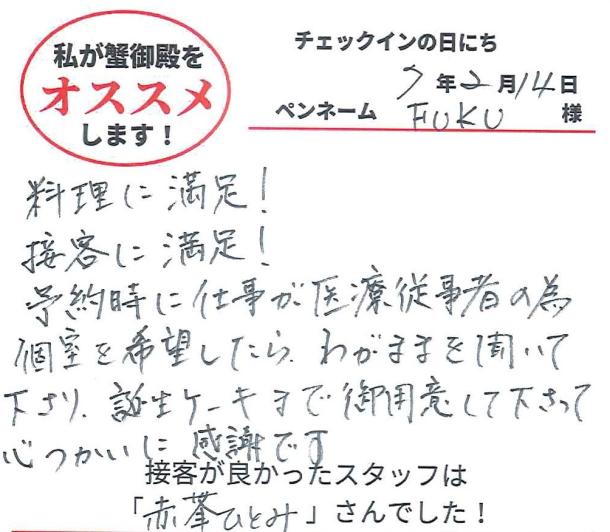 私が蟹御殿を
オススメ
します！
チェックインの日にち
7年2月14日
ペンネーム FUKU 様
料理に満足！
接客に満足！
予約時に仕事が医療従事者の為
個室を希望したら、わがままを聞いて
下さり、誕生ケーキまで御用意して下さって
心づかいに感謝です
接客が良かったスタッフは
「赤峯ひとみ」さんでした！